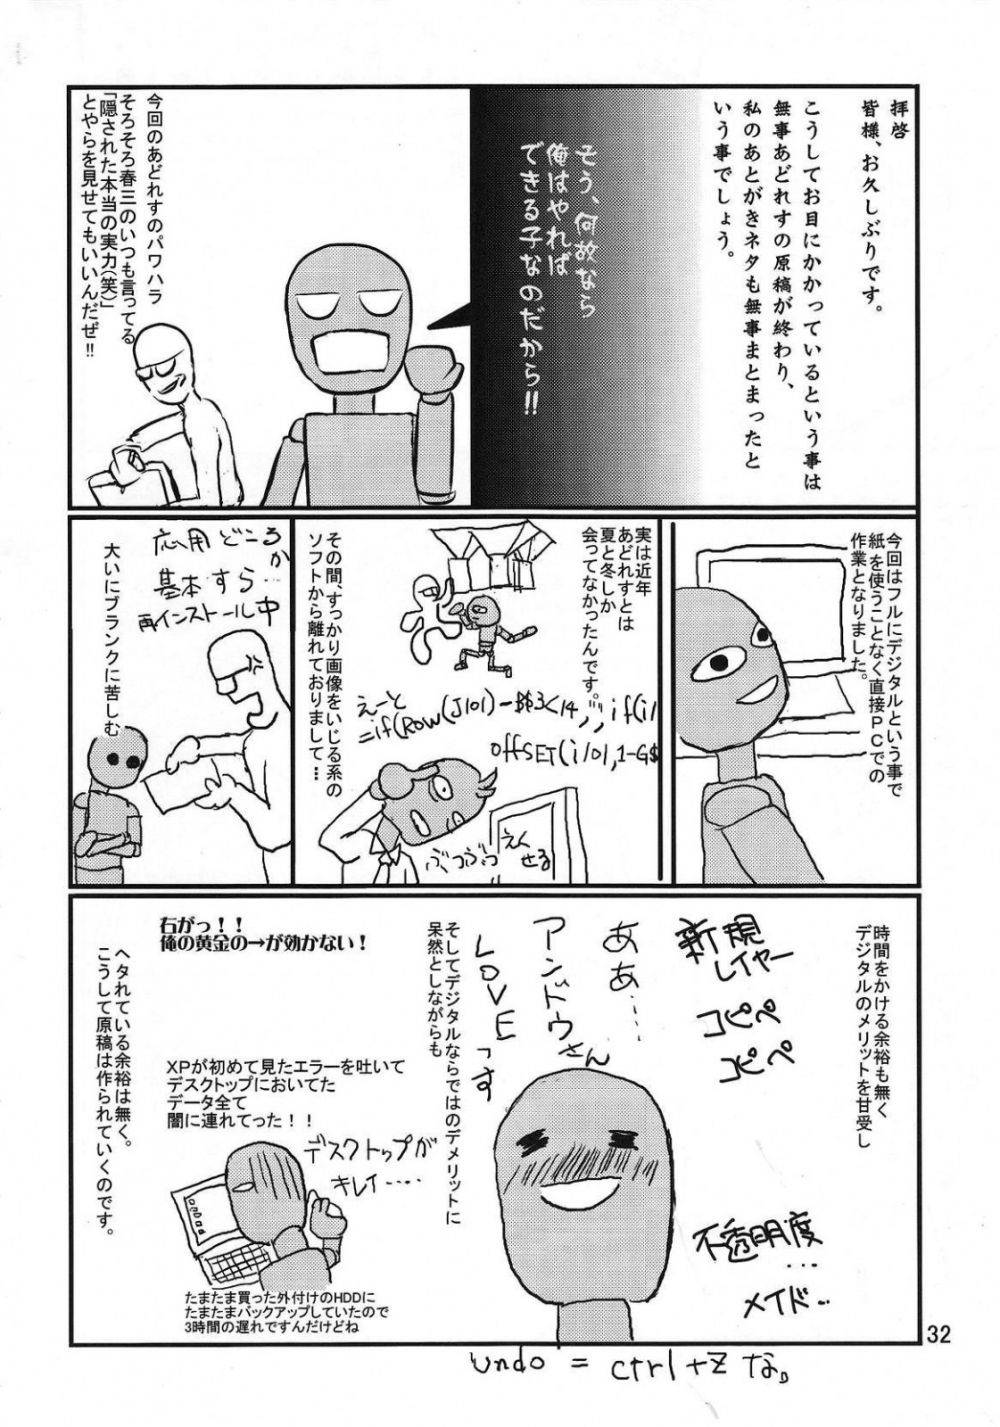 拝啓
皆様、お久しぶりです。
こうしてお目にかかっているという事は
無事あどれすの原稿が終わり、
私のあとがきネタも無事まとまったと
いう事でしょう。
そう、何故なら
俺はやれば
できる子なのだから!!
今回のあどれすのパワハラ
そろそろ春三のいつも言ってる
「隠された本当の実力(笑)」
とやらを見せてもいいんだぜ!!
今回はフルにデジタルという事で
紙を使うことなく直接PCでの
作業となりました。
実は近年
あどれすとは
夏と冬しか
会ってなかったんです。
その間、すっかり画像をいじる系の
ソフトから離れておりまして…
えーと
=if(ROW(J101)-$$3<14,",",if(i1
OffSET(i101,1-G$
ぶつぶつ
えく
せる
応用どころか
基本すら…
再インストール中
大いにブランクに苦しむ
時間をかける余裕も無く
デジタルのメリットを甘受し
新規
レイヤー
コピペ
コピペ
ああ……
アンドゥさん
LOVEっす
不透明度
…
メイド…
そしてデジタルならではのデメリットに
呆然としながらも
右がっ!!
俺の黄金の→が効かない!
XPが初めて見たエラーを吐いて
デスクトップにおいてた
データ全て
闇に連れてった!!
デスクトップが
キレイ……
たまたま買った外付けのHDDに
たまたまバックアップしていたので
3時間の遅れですんだけどね
ヘタれている余裕は無く。
こうして原稿は作られていくのです。
undo = ctrl+Z な。
32